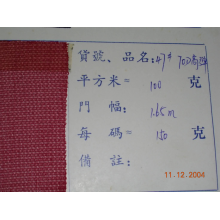 貨號、品名:47#
平方米= 100 克
門 幅: 1.65m
每 碼= 150 克
備 註:
11.12.2004